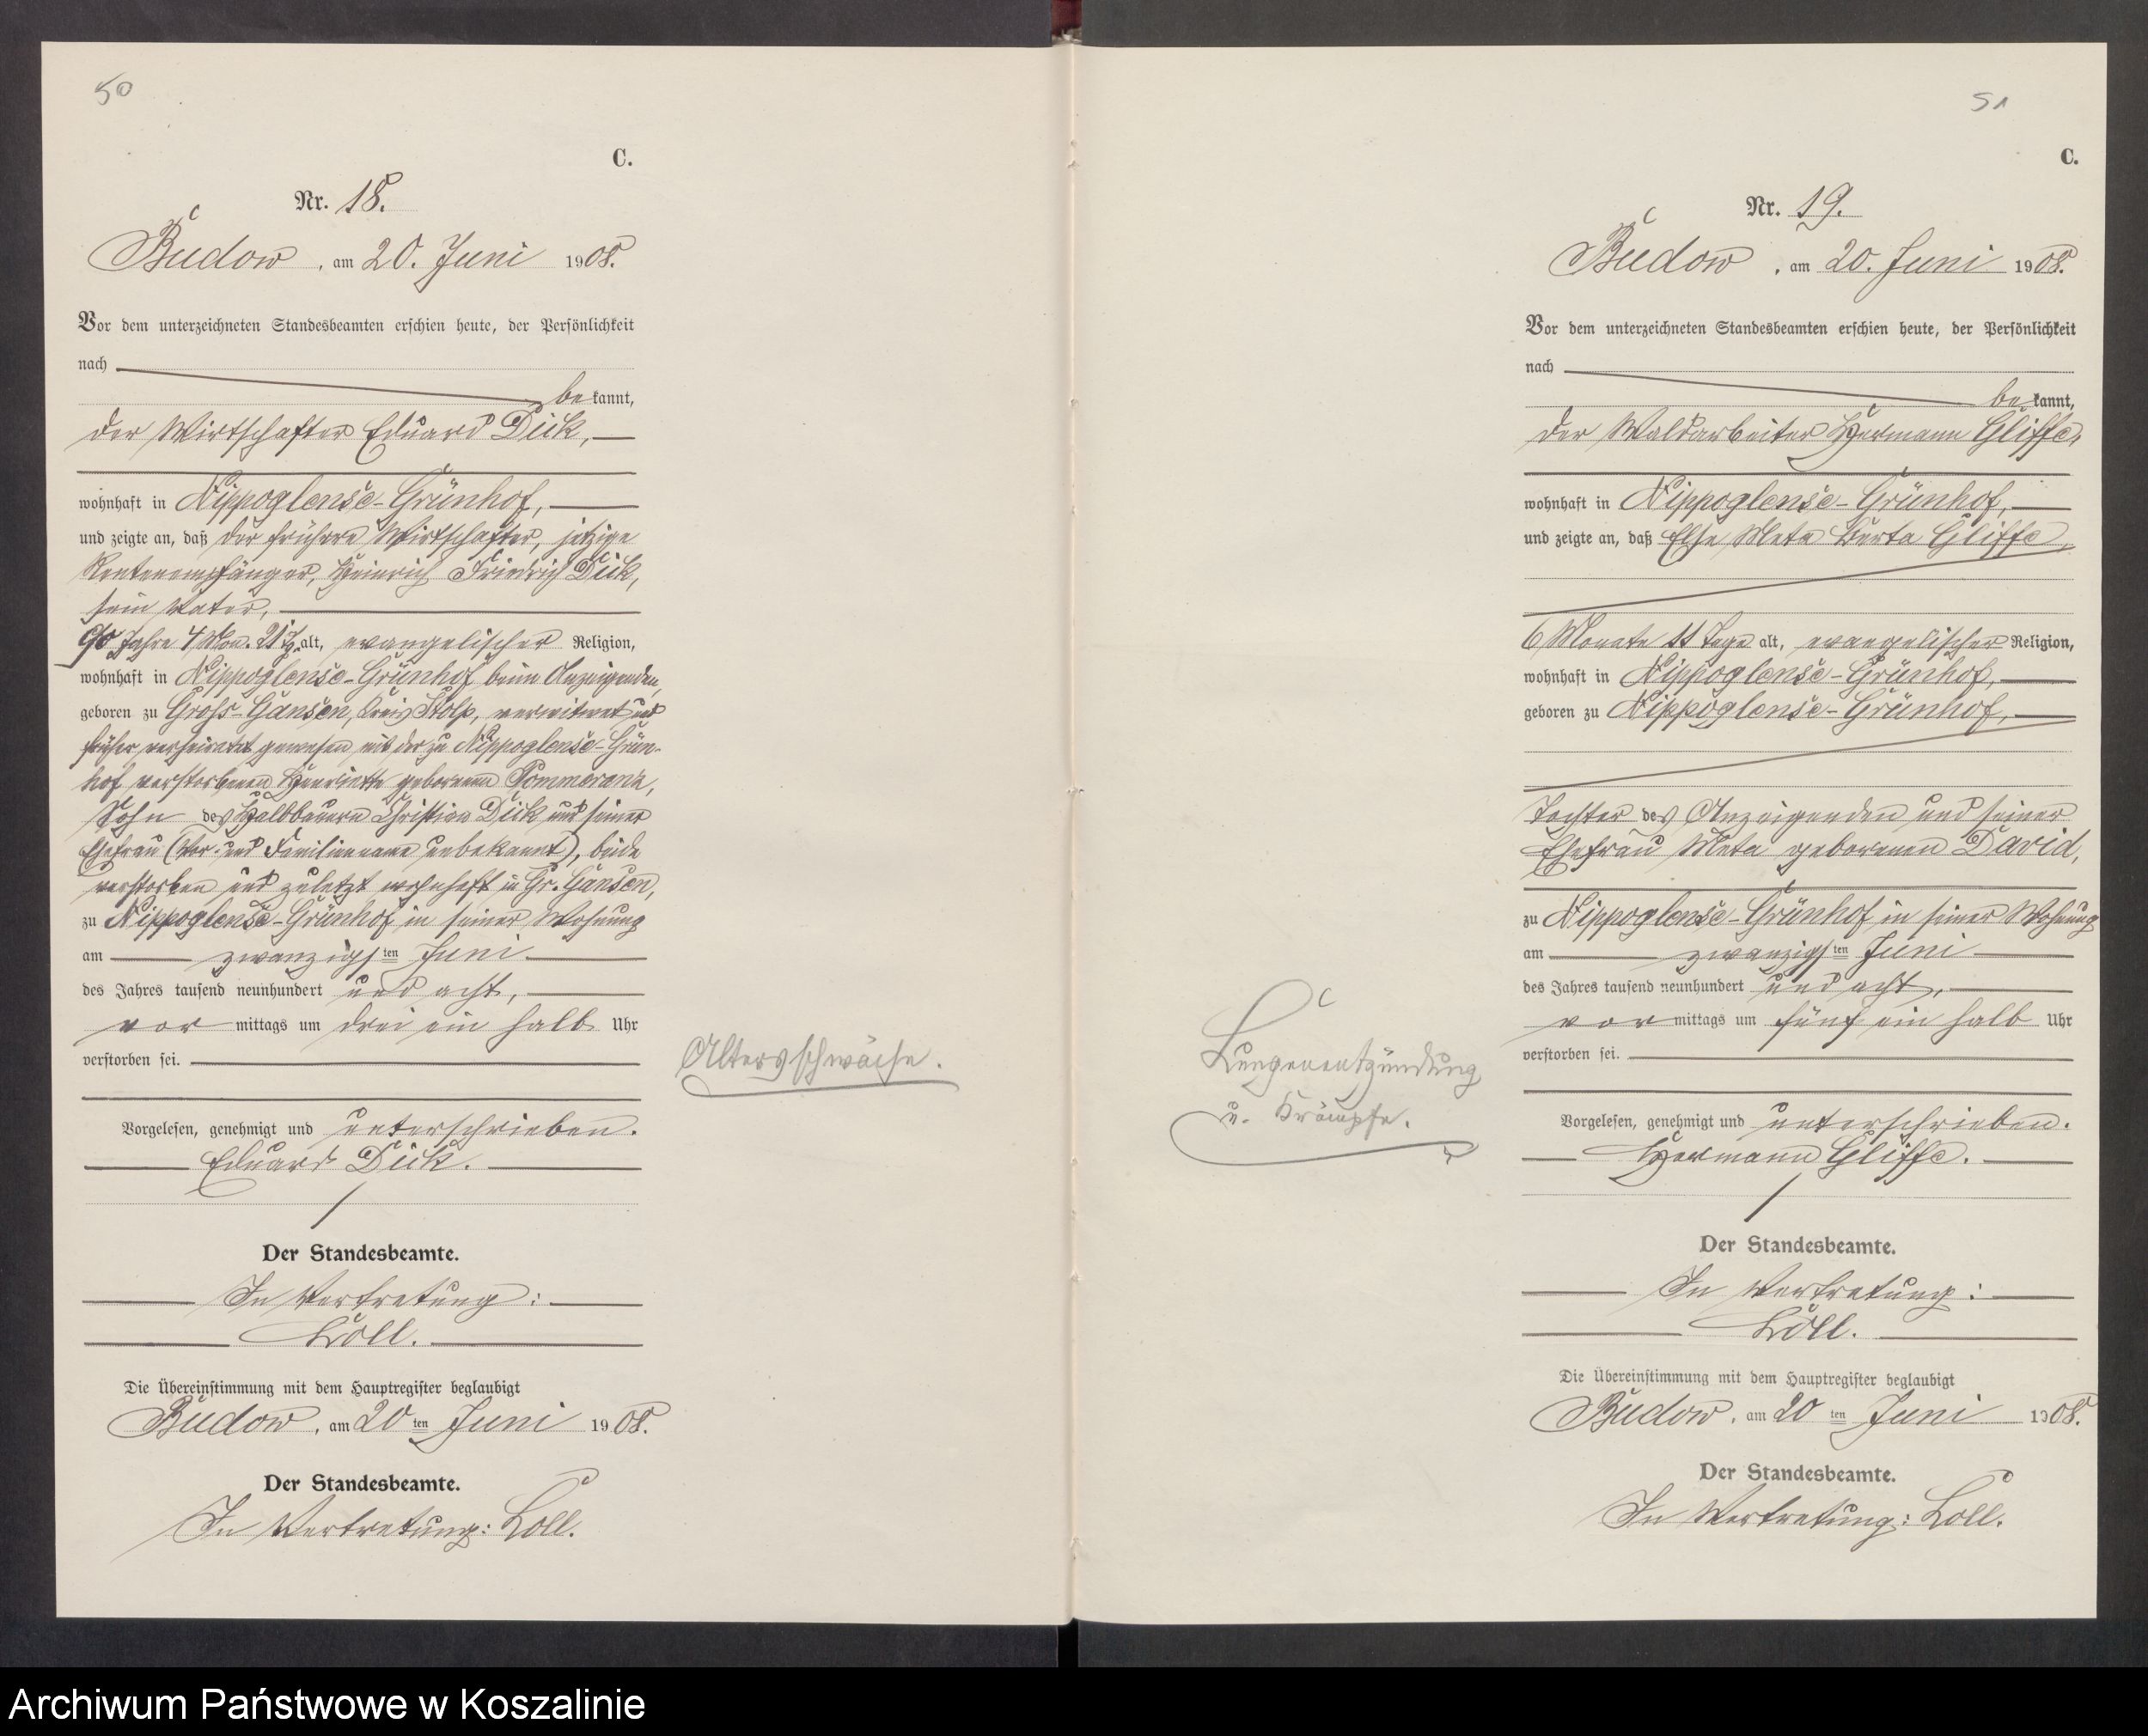 50
C.
Nr. 18.
Budow, am 20. Juni 1908.
Vor dem unterzeichneten Standesbeamten erschien heute, der Persönlichkeit
nach
bekannt,
der Wirtschafter Eduard Dück,
wohnhaft in Nippoglense-Grünhof,
und zeigte an, daß der frühere Wirtschafter, jetzige
Rentenempfänger, Heinrich Friedrich Dück,
sein Vater,
90 Jahre 4 Mon. 21 T. alt, evangelischer Religion,
wohnhaft in Nippoglense-Grünhof beim Anzeigenden,
geboren zu Groß-Gansen, Kreis Stolp, verwitwet und
früher verheiratet gewesen mit der zu Nippoglense-Grün-
hof verstorbenen Henriette geborenen Pommerank,
Sohn des Halbbauern Christian Dück und seiner
Ehefrau (Vor- und Familienname unbekannt), beide
verstorben und zuletzt wohnhaft in Gr. Gansen,
zu Nippoglense-Grünhof in seiner Wohnung
am zwanzigsten Juni
des Jahres tausend neunhundert und acht,
vor mittags um drei ein halb Uhr
verstorben sei.
Altersschwäche.
Vorgelesen, genehmigt und unterschrieben.
Eduard Dück.
Der Standesbeamte.
In Vertretung:
Loll.
Die Übereinstimmung mit dem Hauptregister beglaubigt
Budow, am 20ten Juni 1908.
Der Standesbeamte.
In Vertretung: Loll.
51
C.
Nr. 19.
Budow, am 20. Juni 1908.
Vor dem unterzeichneten Standesbeamten erschien heute, der Persönlichkeit
nach
bekannt,
der Waldarbeiter Hermann Gliffe,
wohnhaft in Nippoglense-Grünhof,
und zeigte an, daß Else Meta Berta Gliffe,
6 Monate 11 Tage alt, evangelischer Religion,
wohnhaft in Nippoglense-Grünhof,
geboren zu Nippoglense-Grünhof,
Tochter des Anzeigenden und seiner
Ehefrau Meta geborenen David,
zu Nippoglense-Grünhof in seiner Wohnung
am zwanzigsten Juni
des Jahres tausend neunhundert und acht,
vor mittags um fünf ein halb Uhr
verstorben sei.
Lungenentzündung
u. Krämpfe.
Vorgelesen, genehmigt und unterschrieben.
Hermann Gliffe.
Der Standesbeamte.
In Vertretung:
Loll.
Die Übereinstimmung mit dem Hauptregister beglaubigt
Budow, am 20ten Juni 1908.
Der Standesbeamte.
In Vertretung: Loll.
Archiwum Państwowe w Koszalinie